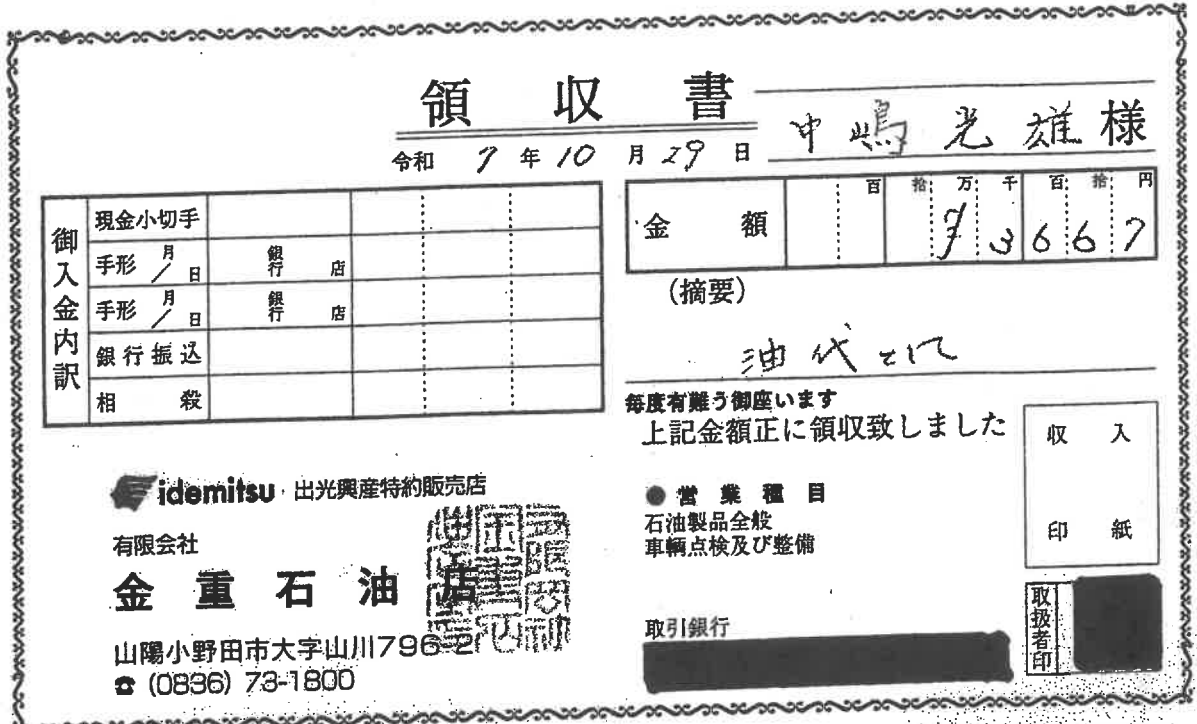 領収書
中嶋光雄様
令和 7 年 10 月 29 日
御入金内訳
現金小切手
手形 月/日 銀行 店
手形 月/日 銀行 店
銀行振込
相殺
金額 百 拾 万 千 百 拾 円
¥3667
(摘要)
油代として
毎度有難う御座います
上記金額正に領収致しました
収入印紙
idemitsu 出光興産特約販売店
有限会社
金重石油店
山陽小野田市大字山川796-2
☎ (0836) 73-1800
● 営業種目
石油製品全般
車輌点検及び整備
取引銀行
取扱者印